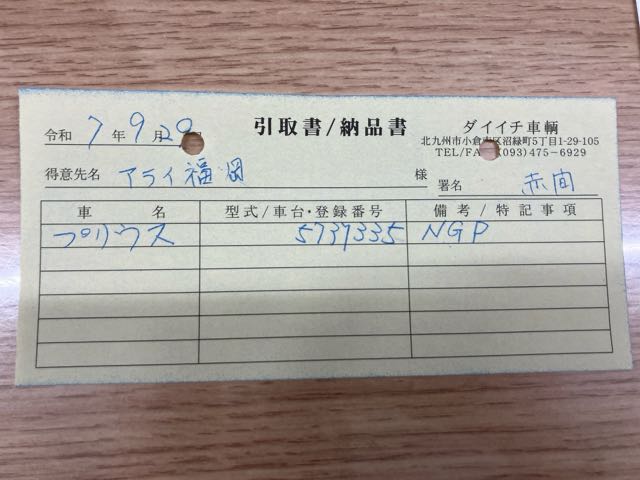 引取書/納品書
ダイイチ車輌
令和 7 年 9 月 20
北九州市小倉 区沼緑町5丁目1-29-105
TEL/FA (093)475-6929
得意先名 アライ福岡 様
署名 赤間
車名 型式/車台・登録番号 備考/特記事項
プリウス 5737335 NGP